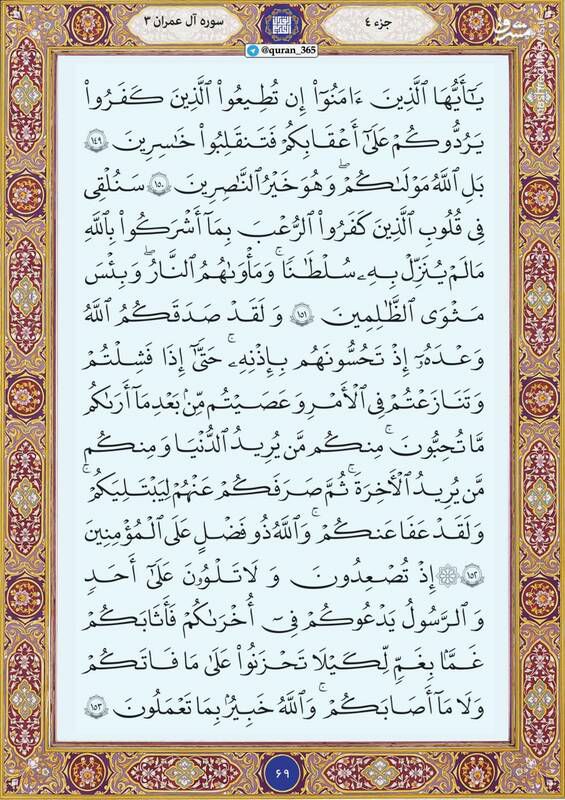 سوره آل عمران ۳
جزء ۴
مشرق
@quran_365
يَـٰٓأَيُّهَا ٱلَّذِينَ ءَامَنُوٓا۟ إِن تُطِيعُوا۟ ٱلَّذِينَ كَفَرُوا۟
يَرُدُّوكُمْ عَلَىٰٓ أَعْقَـٰبِكُمْ فَتَنقَلِبُوا۟ خَـٰسِرِينَ ١٤٩
بَلِ ٱللَّهُ مَوْلَىٰكُمْ ۖ وَهُوَ خَيْرُ ٱلنَّـٰصِرِينَ ١٥٠ سَنُلْقِى
فِى قُلُوبِ ٱلَّذِينَ كَفَرُوا۟ ٱلرُّعْبَ بِمَآ أَشْرَكُوا۟ بِٱللَّهِ
مَا لَمْ يُنَزِّلْ بِهِۦ سُلْطَـٰنًا ۖ وَمَأْوَىٰهُمُ ٱلنَّارُ ۚ وَبِئْسَ
مَثْوَى ٱلظَّـٰلِمِينَ ١٥١ وَلَقَدْ صَدَقَكُمُ ٱللَّهُ
وَعْدَهُۥٓ إِذْ تَحُسُّونَهُم بِإِذْنِهِۦ ۖ حَتَّىٰٓ إِذَا فَشِلْتُمْ
وَتَنَـٰزَعْتُمْ فِى ٱلْأَمْرِ وَعَصَيْتُم مِّنۢ بَعْدِ مَآ أَرَىٰكُم
مَّا تُحِبُّونَ ۚ مِنكُم مَّن يُرِيدُ ٱلدُّنْيَا وَمِنكُم
مَّن يُرِيدُ ٱلْـَٔاخِرَةَ ۚ ثُمَّ صَرَفَكُمْ عَنْهُمْ لِيَبْتَلِيَكُمْ ۖ
وَلَقَدْ عَفَا عَنكُمْ ۗ وَٱللَّهُ ذُو فَضْلٍ عَلَى ٱلْمُؤْمِنِينَ
١٥٢ ۞ إِذْ تُصْعِدُونَ وَلَا تَلْوُۥنَ عَلَىٰٓ أَحَدٍ
وَٱلرَّسُولُ يَدْعُوكُمْ فِىٓ أُخْرَىٰكُمْ فَأَثَـٰبَكُمْ
غَمًّۢا بِغَمٍّ لِّكَيْلَا تَحْزَنُوا۟ عَلَىٰ مَا فَاتَكُمْ
وَلَا مَآ أَصَـٰبَكُمْ ۗ وَٱللَّهُ خَبِيرٌۢ بِمَا تَعْمَلُونَ ١٥٣
٦٩